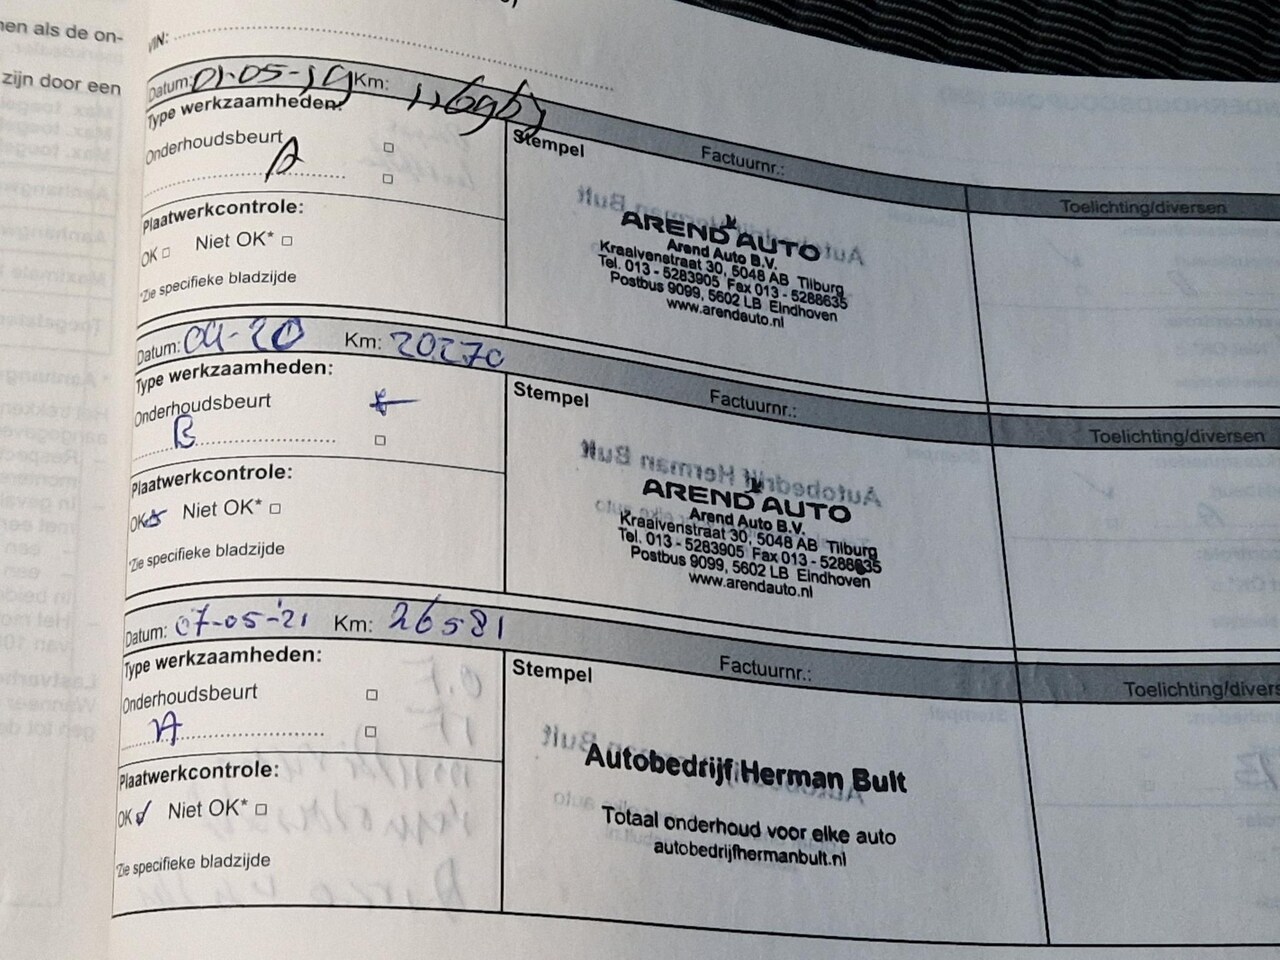 men als de on-
zijn door een
VIN:
Datum: 01-05-19 Km:
Type werkzaamheden:
Onderhoudsbeurt
Stempel Factuurnr.: Toelichting/diversen
Plaatwerkcontrole:
OK Niet OK*
*Zie specifieke bladzijde
AREND AUTO
Arend Auto B.V.
Kraaivenstraat 30, 5048 AB Tilburg
Tel. 013 - 5283905 Fax 013 - 5288635
Postbus 9099, 5602 LB Eindhoven
www.arendauto.nl
Datum: 04-20 Km: 20270
Type werkzaamheden:
Onderhoudsbeurt
B
Stempel Factuurnr.: Toelichting/diversen
Plaatwerkcontrole:
OK Niet OK*
*Zie specifieke bladzijde
AREND AUTO
Arend Auto B.V.
Kraaivenstraat 30, 5048 AB Tilburg
Tel. 013 - 5283905 Fax 013 - 5288635
Postbus 9099, 5602 LB Eindhoven
www.arendauto.nl
Datum: 07-05-'21 Km: 26581
Type werkzaamheden:
Onderhoudsbeurt
A
Stempel Factuurnr.: Toelichting/divers
Plaatwerkcontrole:
OK Niet OK*
*Zie specifieke bladzijde
Autobedrijf Herman Bult
Totaal onderhoud voor elke auto
autobedrijfhermanbult.nl